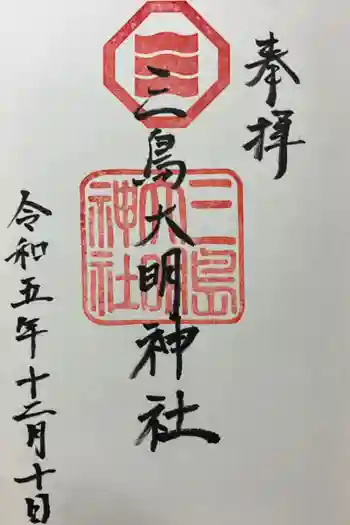 奉拝
三島大明神社
三島
大明
神社
令和五年十二月十日